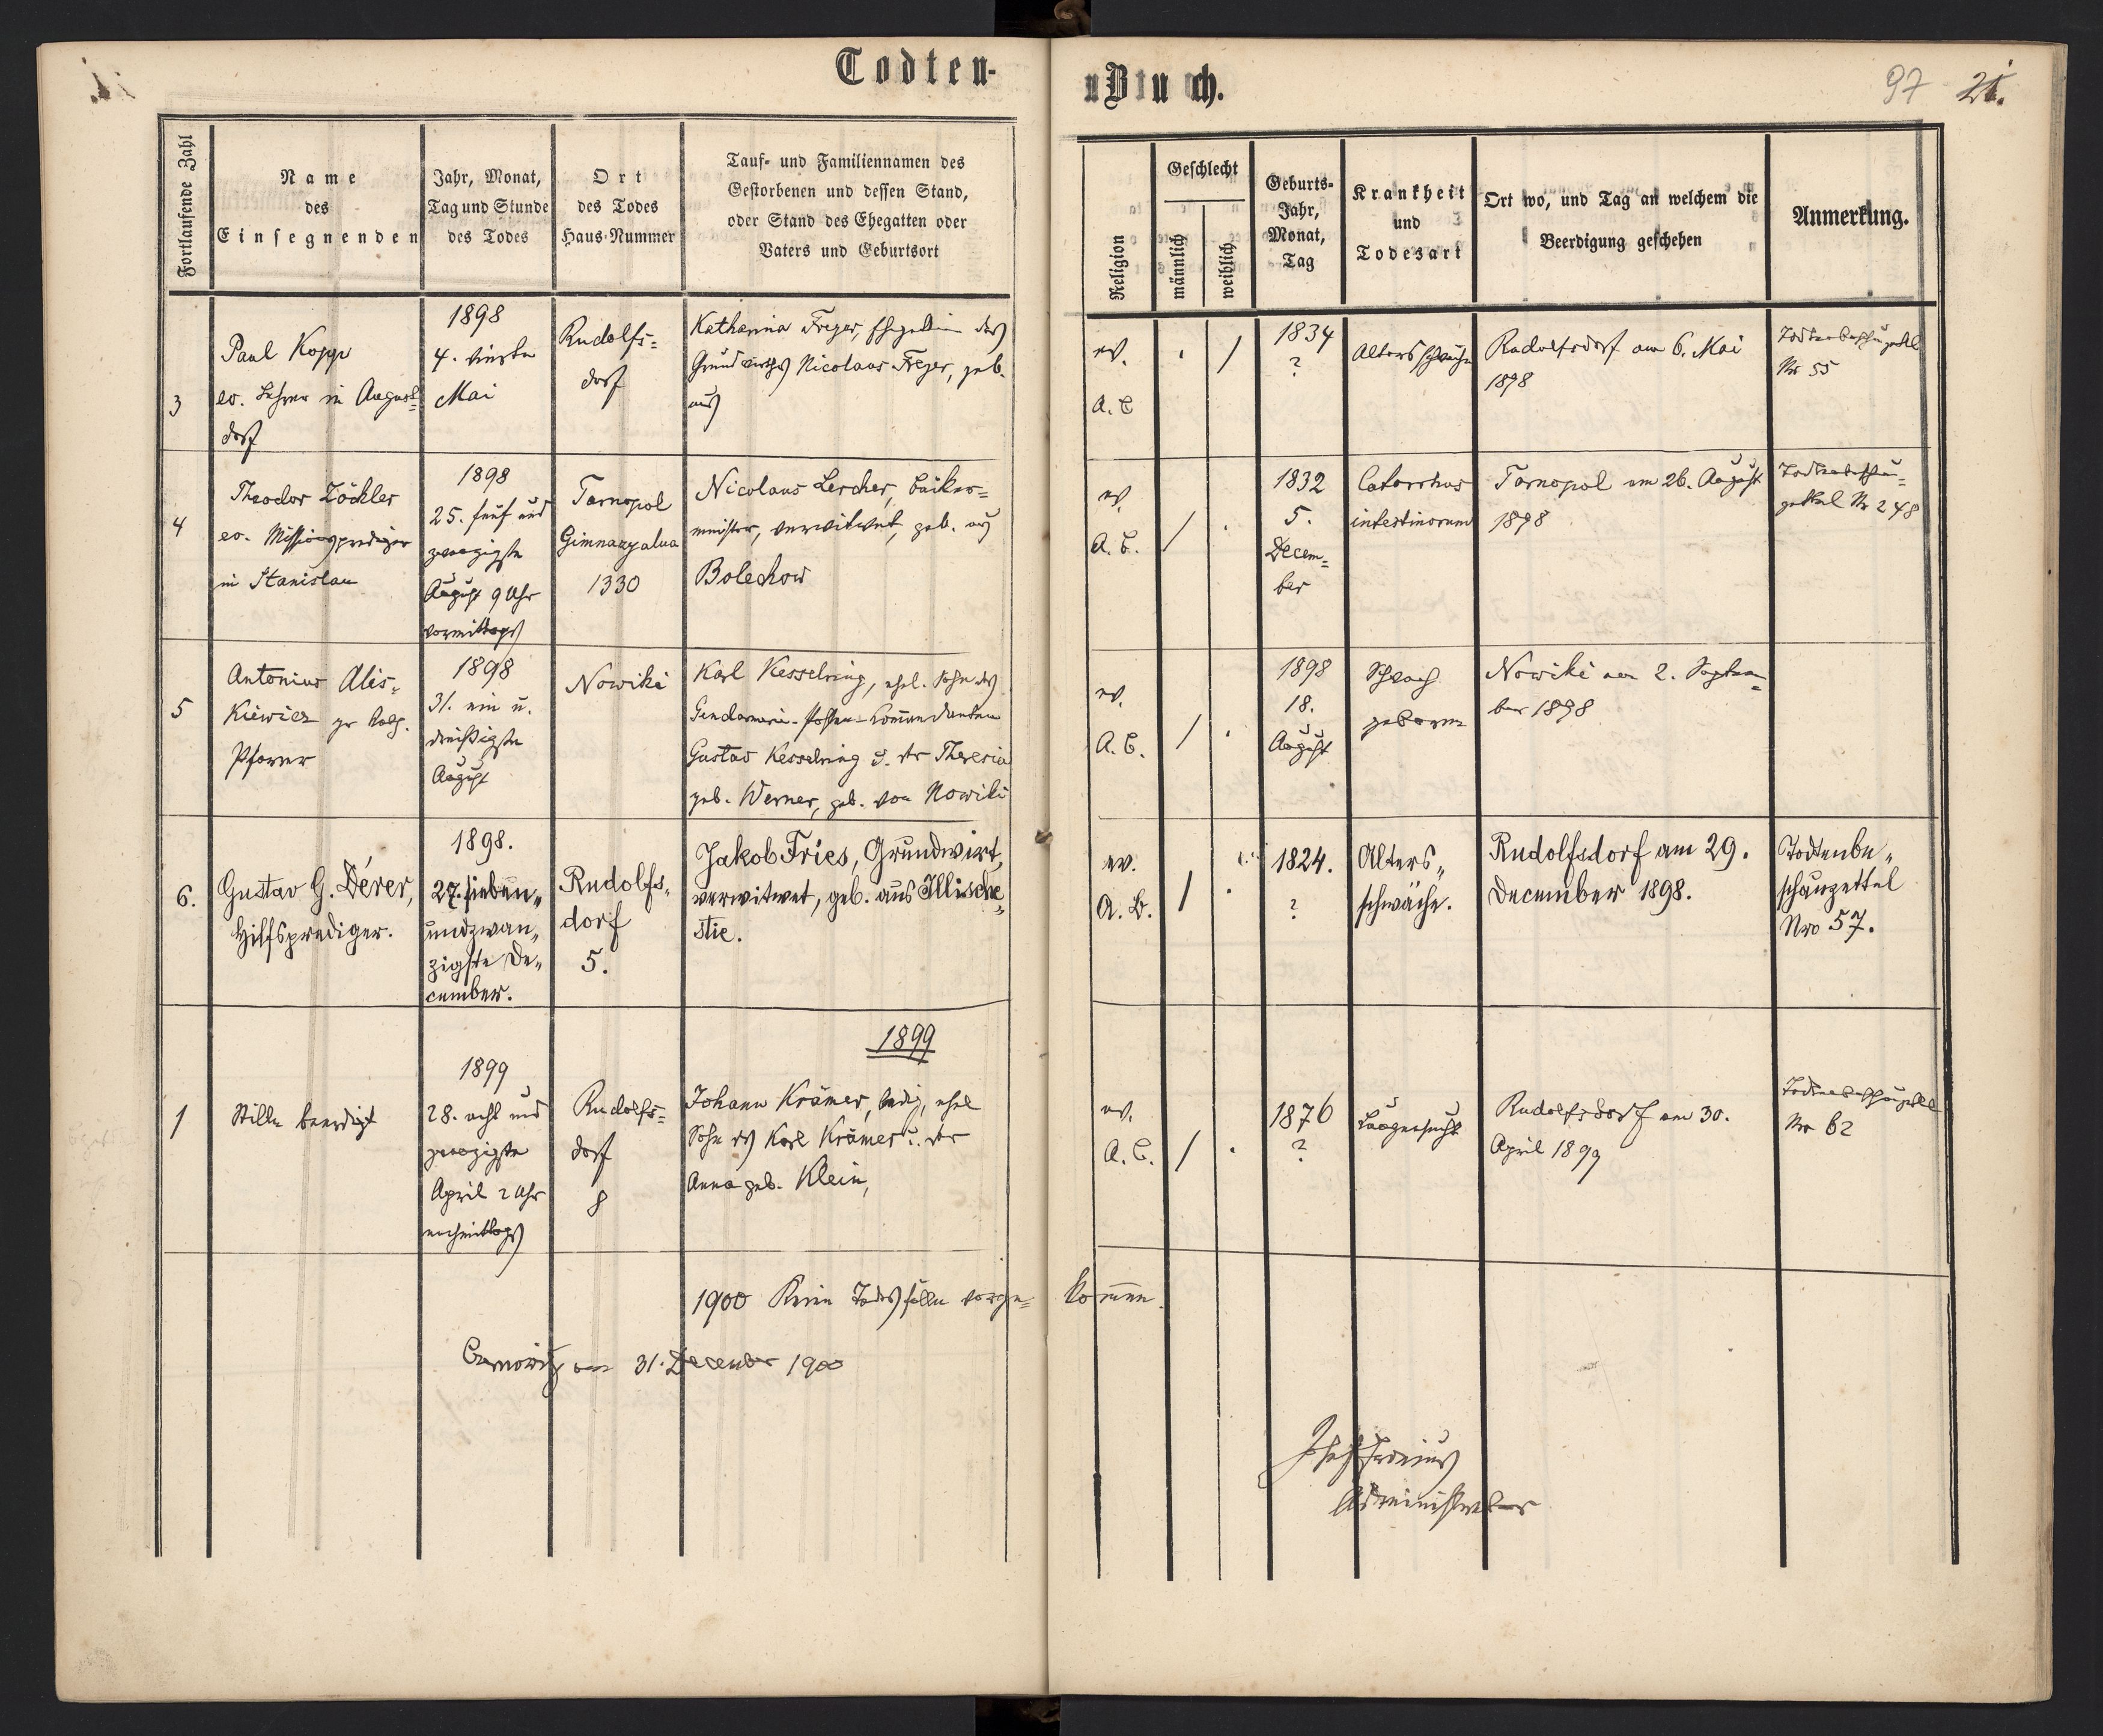 Todten-
Buch.
97 21.
Fortlaufende Zahl
Name
des
Einsegnenden
Jahr, Monat,
Tag und Stunde
des Todes
Ort
des Todes
Haus-Nummer
Tauf- und Familiennamen des
Gestorbenen und dessen Stand,
oder Stand des Ehegatten oder
Vaters und Geburtsort
Religion
Geschlecht
männlich
weiblich
Geburts-
Jahr,
Monat,
Tag
Krankheit
und
Todesart
Ort wo, und Tag an welchem die
Beerdigung geschehen
Anmerkung.
3
Paul Kopp
ev. Lehrer in August=
dorf
1898
4. vierte
Mai
Rudolfs=
dorf
Katharina Freyer, Ehegattin des
Grundwirths Nicolaus Freyer, geb.
aus
ev.
A. C
. /
1834
?
Altersschwäche
Rudolfsdorf am 6. Mai
1898
Todtenbeschauzettel
Nr 55
4
Theodor Zöckler
ev. Missionsprediger
in Stanislau
1898
25. fünf und
zwanzigste
August 9 Uhr
vormittags
Tarnopol
Gimnazyalna
1330
Nicolaus Lercher, Bäcker=
meister, verwitwet, geb. aus
Bolechow
ev.
A. C.
/ .
1832
5.
Decem=
ber
Catarrhus
intestinorum
Tarnopol am 26. August
1898
Todtenbeschau=
zettel Nr 248
5
Antonius Alis=
kiewicz gr kath.
Pfarrer
1898
31. ein u.
dreißigste
August
Nowiki
Karl Kesselring, ehel. Sohn des
Gendarmerie-Posten-Kommandanten
Gustav Kesselring u. der Theresia
geb. Werner, geb. von Nowiki
ev.
A. C.
/ .
1898
18.
August
Schwach
geboren
Nowiki am 2. Septem=
ber 1898
6.
Gustav G. Dérer,
Hilfsprediger.
1898.
27. sieben„
undzwan„
zigste De„
cember.
Rudolfs„
dorf
5.
Jakob Fries, Grundwirt,
verwitwet, geb. aus Illische„
stie.
ev.
A. B.
/ .
1824.
?
Alters„
schwäche.
Rudolfsdorf am 29.
December 1898.
Todtenbe„
schauzettel
Nro 57.
1899
1
Stille beerdigt
1899
28. acht und
zwanzigste
April 2 Uhr
nachmittags
Rudolfs=
dorf
8
Johann Krämer, ledig, ehel
Sohn des Karl Krämer u. der
Anna geb. Klein,
ev.
A. C.
/ .
1876
?
Lungensucht
Rudolfsdorf am 30.
April 1899
Todtenbeschauzettel
Nr 62
1900 Keine Todesfälle vorge= kommen.
Czernowitz am 31. December 1900
Administrator